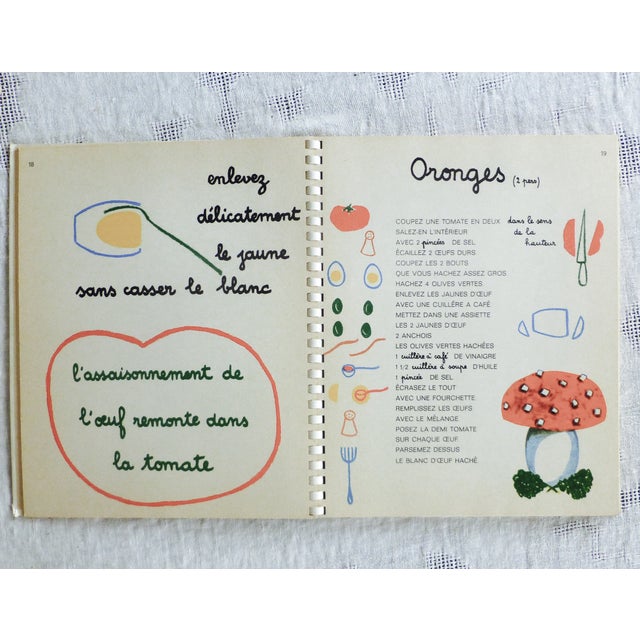 18
enlevez
délicatement
le jaune
sans casser le blanc
l'assaisonnement de
l'œuf remonte dans
la tomate
19
Oronges (2 pers)
COUPEZ UNE TOMATE EN DEUX dans le sens de la hauteur
SALEZ-EN L'INTÉRIEUR
AVEC 2 pincées DE SEL
ÉCAILLEZ 2 ŒUFS DURS
COUPEZ LES 2 BOUTS
QUE VOUS HACHEZ ASSEZ GROS
HACHEZ 4 OLIVES VERTES
ENLEVEZ LES JAUNES D'ŒUF
AVEC UNE CUILLÈRE A CAFÉ
METTEZ DANS UNE ASSIETTE
LES 2 JAUNES D'ŒUF
2 ANCHOIS
LES OLIVES VERTES HACHÉES
1 cuillère à café DE VINAIGRE
1 1/2 cuillère à soupe D'HUILE
1 pincée DE SEL
ÉCRASEZ LE TOUT
AVEC UNE FOURCHETTE
REMPLISSEZ LES ŒUFS
AVEC LE MÉLANGE
POSEZ LA DEMI TOMATE
SUR CHAQUE ŒUF
PARSEMEZ DESSUS
LE BLANC D'ŒUF HACHÉ